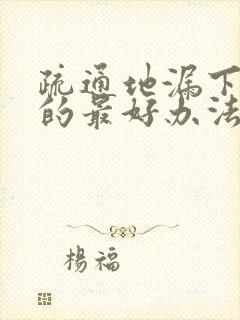 疏通地漏下
的最好办法
楊福